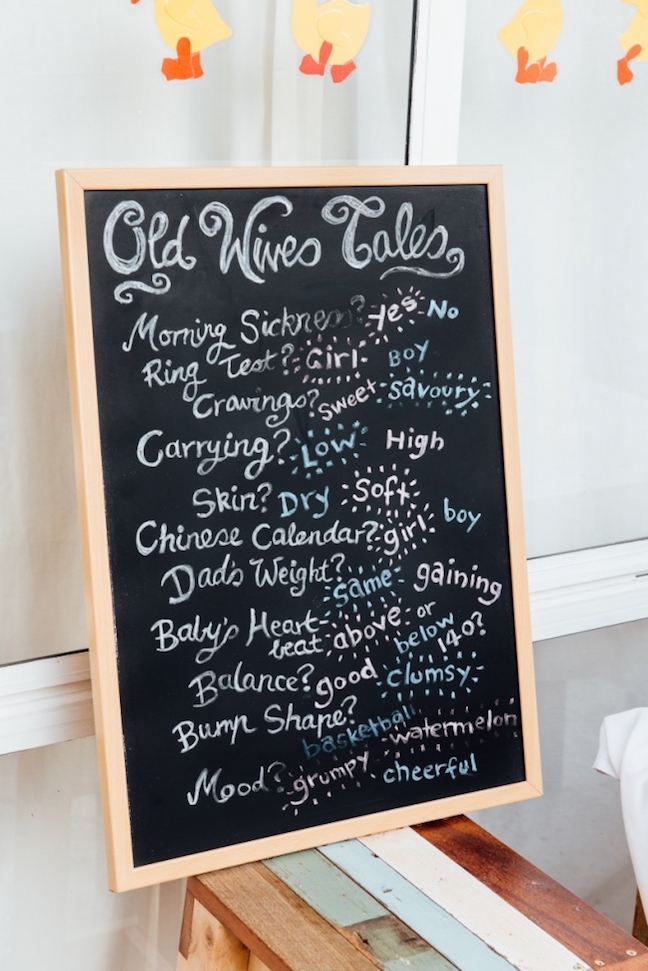 Old Wives Tales
Morning Sickness? Yes No
Ring Test? Girl BOY
Cravings? Sweet savoury
Carrying? Low High
Skin? Dry Soft
Chinese Calendar? girl boy
Dad's Weight? Same gaining
Baby's Heart-
beat above or below 140?
Balance? good clumsy
Bump Shape?
basketball watermelon
Mood? grumpy cheerful